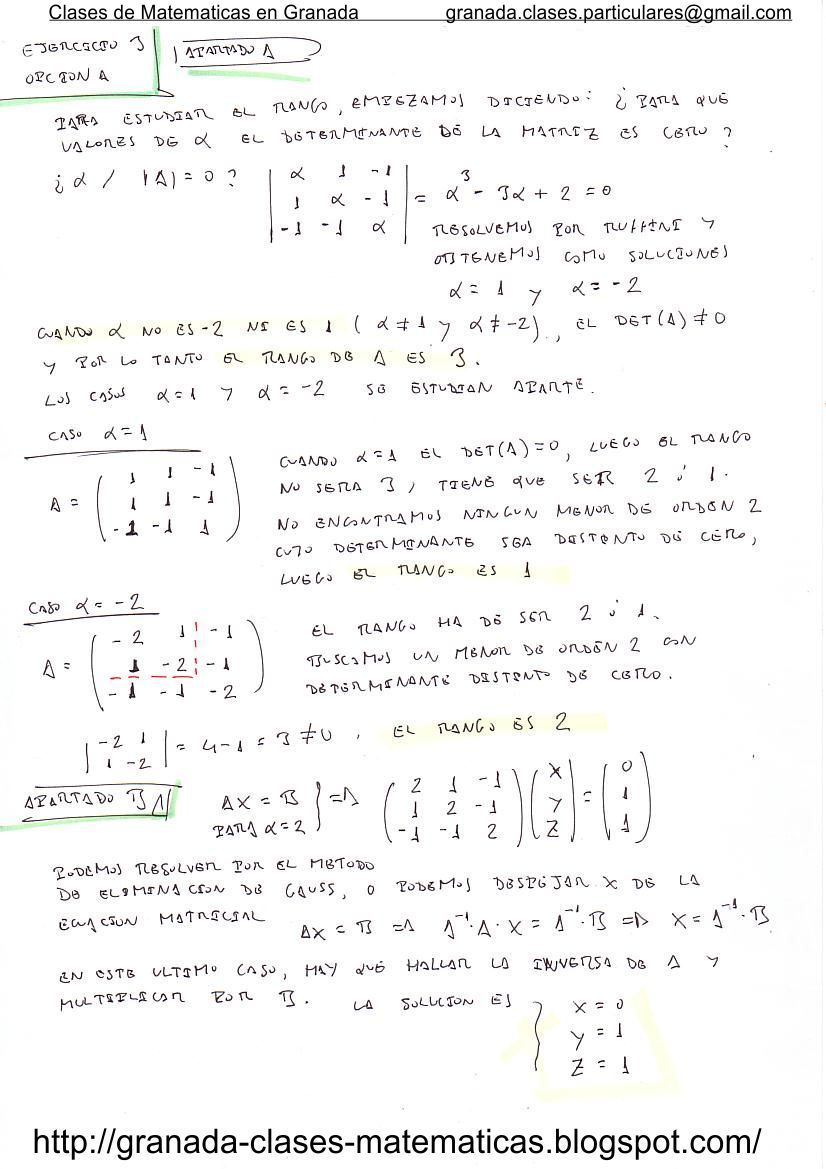 Clases de Matematicas en Granada granada.clases.particulares@gmail.com
EJERCICIO 3
OPCION A
APARTADO A
PARA ESTUDIAR EL RANGO, EMPEZAMOS DICIENDO: ¿PARA QUE
VALORES DE α EL DETERMINANTE DE LA MATRIZ ES CERO?
¿α / |A| = 0?
| α 1 -1 |
| 1 α -1 | = α³ - 3α + 2 = 0
| -1 -1 α |
RESOLVEMOS POR RUFFINI Y
OBTENEMOS COMO SOLUCIONES
α = 1 y α = -2
CUANDO α NO ES -2 NI ES 1 (α ≠ 1 y α ≠ -2), EL DET(A) ≠ 0
Y POR LO TANTO EL RANGO DE A ES 3.
LOS CASOS α = 1 Y α = -2 SE ESTUDIAN APARTE.
CASO α = 1
A =
( 1 1 -1 )
( 1 1 -1 )
( -1 -1 1 )
CUANDO α = 1 EL DET(A) = 0, LUEGO EL RANGO
NO SERA 3, TIENE QUE SER 2 ó 1.
NO ENCONTRAMOS NINGUN MENOR DE ORDEN 2
CUYO DETERMINANTE SEA DISTINTO DE CERO,
LUEGO EL RANGO ES 1
CASO α = -2
A =
( -2 1 -1 )
( 1 -2 -1 )
( -1 -1 -2 )
EL RANGO HA DE SER 2 ó 1.
BUSCAMOS UN MENOR DE ORDEN 2 CON
DETERMINANTE DISTINTO DE CERO.
| -2 1 |
| 1 -2 | = 4 - 1 = 3 ≠ 0, EL RANGO ES 2
APARTADO B
AX = B
PARA α = 2
} ⇒
( 2 1 -1 ) ( X ) ( 0 )
( 1 2 -1 ) ( Y ) = ( 1 )
( -1 -1 2 ) ( Z ) ( 1 )
PODEMOS RESOLVER POR EL METODO
DE ELIMINACION DE GAUSS, O PODEMOS DESPEJAR X DE LA
ECUACION MATRICIAL AX = B ⇒ A⁻¹·A·X = A⁻¹·B ⇒ X = A⁻¹·B
EN ESTE ULTIMO CASO, HAY QUE HALLAR LA INVERSA DE A Y
MULTIPLICAR POR B. LA SOLUCION ES
X = 0
Y = 1
Z = 1
http://granada-clases-matematicas.blogspot.com/